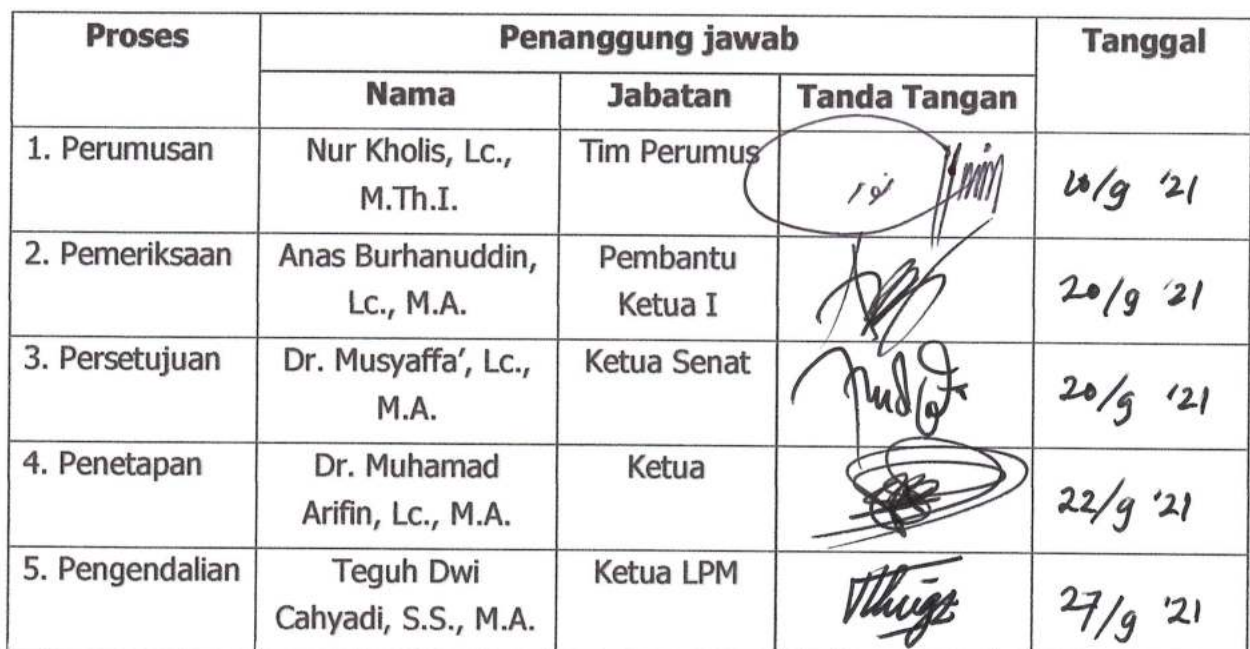 Proses Penanggung jawab Tanggal
Nama Jabatan Tanda Tangan
1. Perumusan Nur Kholis, Lc., Tim Perumus
M.Th.I.
/9 '21
2. Pemeriksaan Anas Burhanuddin, Pembantu
Lc., M.A. Ketua I 20/9 '21
3. Persetujuan Dr. Musyaffa’, Lc., Ketua Senat
M.A. 20/9 '21
4. Penetapan Dr. Muhamad Ketua
Arifin, Lc., M.A. 22/9 '21
5. Pengendalian Teguh Dwi Ketua LPM
Cahyadi, S.S., M.A. 27/9 '21